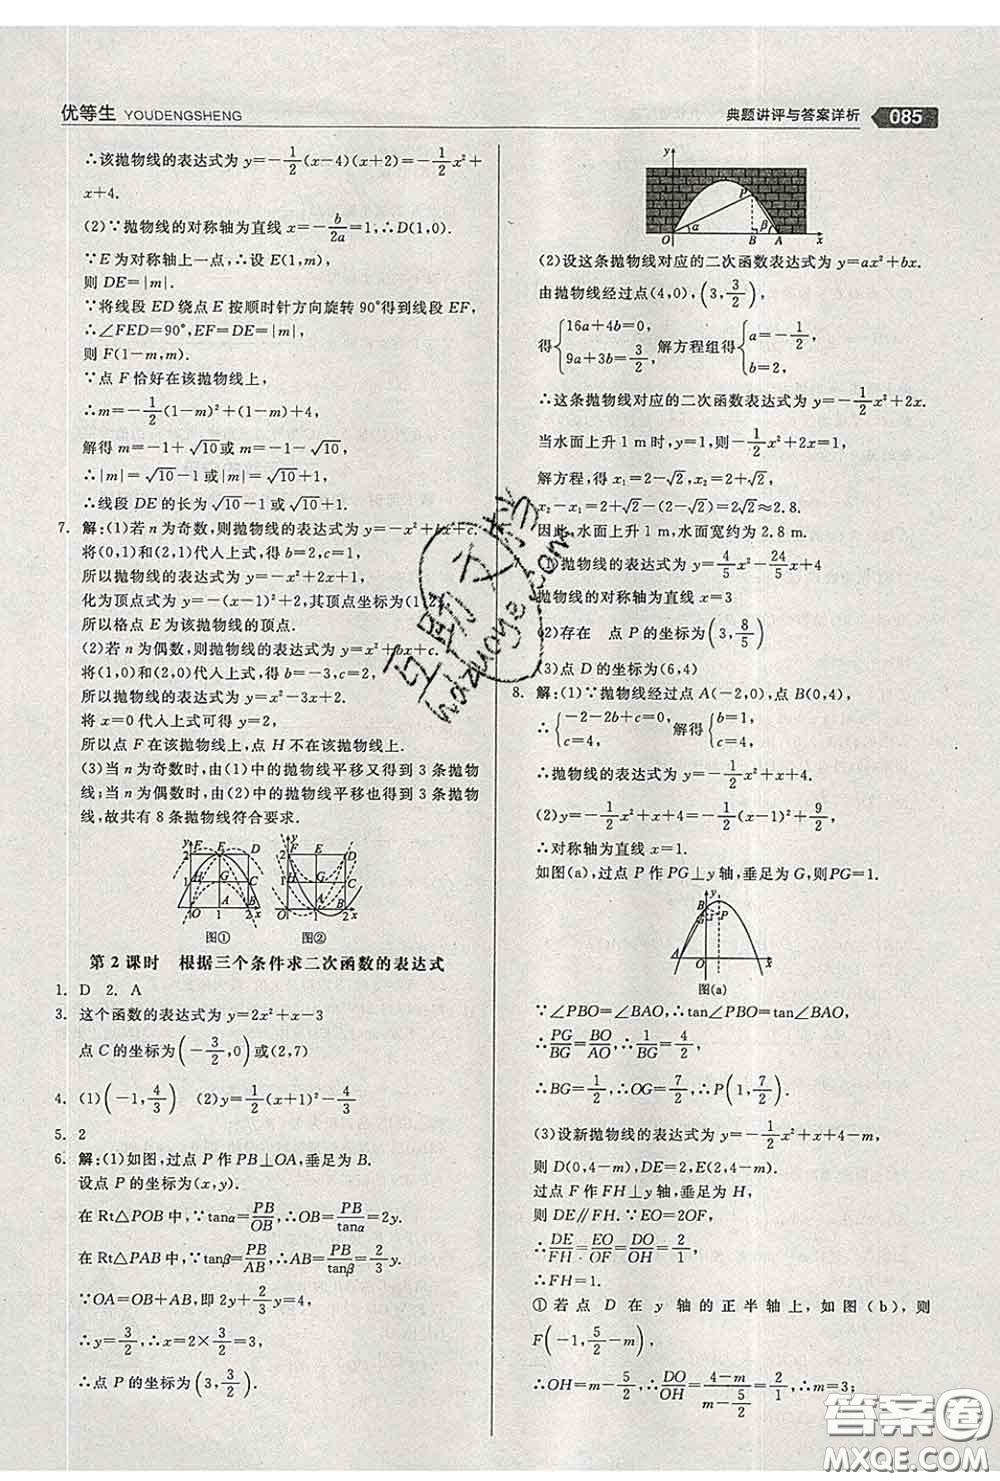 优等生 YOUDENGSHENG
典题讲评与答案详析 085
∴该抛物线的表达式为 y=-1/2(x-4)(x+2)=-1/2x²+
x+4.
(2)∵抛物线的对称轴为直线 x=-b/2a=1,∴D(1,0).
∵E 为对称轴上一点,∴设 E(1,m),
则 DE=|m|.
∵将线段 ED 绕点 E 按顺时针方向旋转 90°得到线段 EF,
∴∠FED=90°,EF=DE=|m|,
则 F(1-m,m).
∵点 F 恰好在该抛物线上,
∴m=-1/2(1-m)²+(1-m)+4,
解得 m=-1+√10或 m=-1-√10,
∴|m|=√10-1或|m|=√10+1,
∴线段 DE 的长为√10-1或√10+1.
7. 解:(1)若 n 为奇数,则抛物线的表达式为 y=-x²+bx+c.
将(0,1)和(2,1)代入上式,得 b=2,c=1,
所以抛物线的表达式为 y=-x²+2x+1,
化为顶点式为 y=-(x-1)²+2,其顶点坐标为(1,2),
所以格点 E 为该抛物线的顶点.
(2)若 n 为偶数,则抛物线的表达式为 y=x²+bx+c.
将(1,0)和(2,0)代入上式,得 b=-3,c=2,
所以抛物线的表达式为 y=x²-3x+2.
将 x=0 代入上式可得 y=2,
所以点 F 在该抛物线上,点 H 不在该抛物线上.
(3)当 n 为奇数时,由(1)中的抛物线平移又得到 3 条抛物
线;当 n 为偶数时,由(2)中的抛物线平移也得到 3 条抛物
线,故共有 8 条抛物线符合要求.
y F E D
2
1 H G C
O 1 A B 2 x
图①
y F E D
2
1 H G C
O 1 A B 2 x
图②
第 2 课时 根据三个条件求二次函数的表达式
1. D 2. A
3. 这个函数的表达式为 y=2x²+x-3
点 C 的坐标为(-3/2,0)或(2,7)
4. (1)(-1,4/3) (2)y=1/2(x+1)²-4/3
5. 2
6. 解:(1)如图,过点 P 作 PB⊥OA,垂足为 B.
设点 P 的坐标为(x,y).
在 Rt△POB 中,∵tanα=PB/OB,∴OB=PB/tanα=2y.
在 Rt△PAB 中,∵tanβ=PB/AB,∴AB=PB/tanβ=2/3y.
∵OA=OB+AB,即 2y+2/3y=4,
∴y=3/2,∴x=2×3/2=3,
∴点 P 的坐标为(3,3/2).
y P α β O B A x
(2)设这条抛物线对应的二次函数表达式为 y=ax²+bx.
由抛物线经过点(4,0),(3,3/2),
得{16a+4b=0, 9a+3b=3/2, 解方程组得{a=-1/2, b=2,
∴这条抛物线对应的二次函数表达式为 y=-1/2x²+2x.
当水面上升 1 m 时,y=1,即-1/2x²+2x=1,
解方程,得 x₁=2-√2,x₂=2+√2,
x₂-x₁=2+√2-(2-√2)=2√2≈2.8.
因此,水面上升 1 m,水面宽约为 2.8 m.
(1)抛物线的表达式为 y=4/5x²-24/5x+4
抛物线的对称轴为直线 x=3
(2)存在 点 P 的坐标为(3,8/5)
(3)点 D 的坐标为(6,4)
8. 解:(1)∵抛物线经过点 A(-2,0),点 B(0,4),
∴{-2-2b+c=0, c=4, 解得{b=1, c=4,
∴抛物线的表达式为 y=-1/2x²+x+4.
(2)y=-1/2x²+x+4=-1/2(x-1)²+9/2,
∴对称轴为直线 x=1.
如图(a),过点 P 作 PG⊥y 轴,垂足为 G,则PG=1.
y B G P A O x
图(a)
∵∠PBO=∠BAO,∴tan∠PBO=tan∠BAO,
∴PG/BG=BO/AO,∴1/BG=4/2,
∴BG=1/2,∴OG=7/2,∴P(1,7/2).
(3)设新抛物线的表达式为 y=-1/2x²+x+4-m,
则 D(0,4-m),DE=2,E(2,4-m).
过点 F 作 FH⊥y 轴,垂足为 H,
则 DE∥FH.∵EO=2OF,
∴DE/FH=EO/OF=DO/OH=2/1,
∴FH=1.
①若点 D 在 y 轴的正半轴上,如图(b),则
F(-1,5/2-m),
∴OH=m-5/2,∴DO/OH=(4-m)/(m-5/2)=2/1,∴m=3;
互助文学
hdzuoye.com
答案圈
MXQE.COM